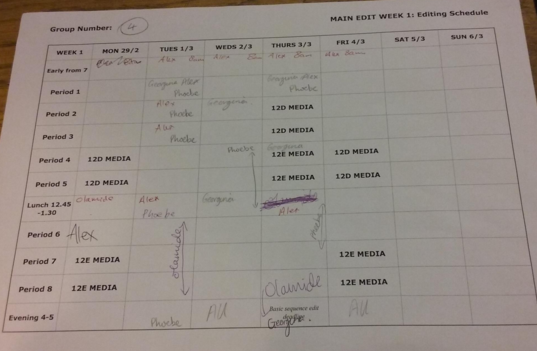 Group Number: 4
MAIN EDIT WEEK 1: Editing Schedule
WEEK 1 MON 29/2 TUES 1/3 WEDS 2/3 THURS 3/3 FRI 4/3 SAT 5/3 SUN 6/3
Early from 7 Alex 8am Alex 8am Alex 8am Alex 8am
Period 1 Georgina Alex Phoebe Georgina Alex Phoebe
Period 2 Alex Phoebe Georgina 12D MEDIA
Period 3 Alex Phoebe 12D MEDIA
Period 4 12D MEDIA Phoebe Georgina 12E MEDIA 12D MEDIA
Period 5 12D MEDIA 12E MEDIA 12D MEDIA
Lunch 12.45 Olamide Alex Georgina
-1.30 Phoebe Alex
Period 6 Alex Olamide Phoebe
Period 7 12E MEDIA 12E MEDIA
Period 8 12E MEDIA Olamide 12E MEDIA
Evening 4-5 Phoebe All Basic sequence edit All
Georgina.